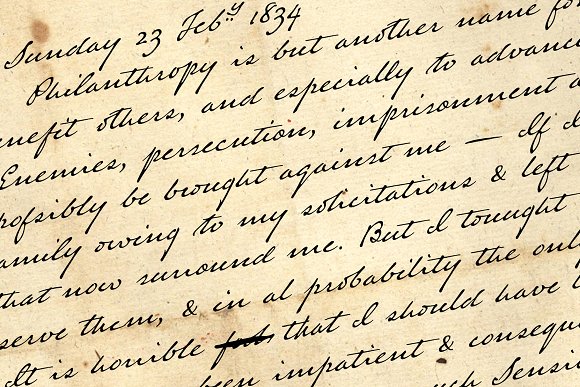 Sunday 23 Feby 1834
Philanthropy is but another name for
enefit others, and especially to advance
Enemies, persecution, imprisonment a
rofsibly be brought against me — If I
amily owing to my solicitations & left
that now surround me. But I tought
serve them, & in al probability the only
It is horrible that I should have
been impatient & consequ
Sensi